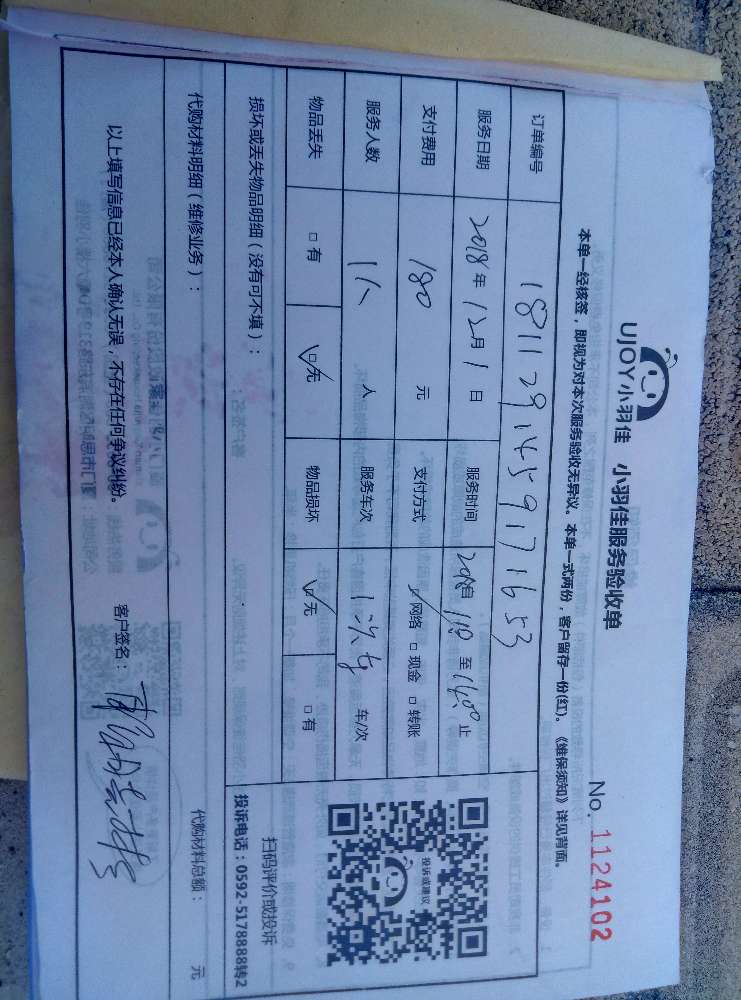 UJOY小羽佳 小羽佳服务验收单
No. 1124102
本单一经核签，即视为对本次服务验收无异议。本单一式两份，客户留存一份(红)。《维保须知》详见背面。
订单编号 1811291459171653
服务日期 2018年12月1日 服务时间 自 至 14:00 止
支付费用 180 元 支付方式 ☑网络 □现金 □转账
服务人数 1人 人 服务车次 1次车 车/次
物品丢失 □有 ☑无 物品损坏 ☑无 □有
投诉或建议
扫码评价或投诉
投诉电话：0592-5178888转2
损坏或丢失物品明细（没有可不填）：
代购材料明细（维修业务）： 代购材料总额： 元
以上填写信息已经本人确认无误，不存在任何争议纠纷。 客户签名：